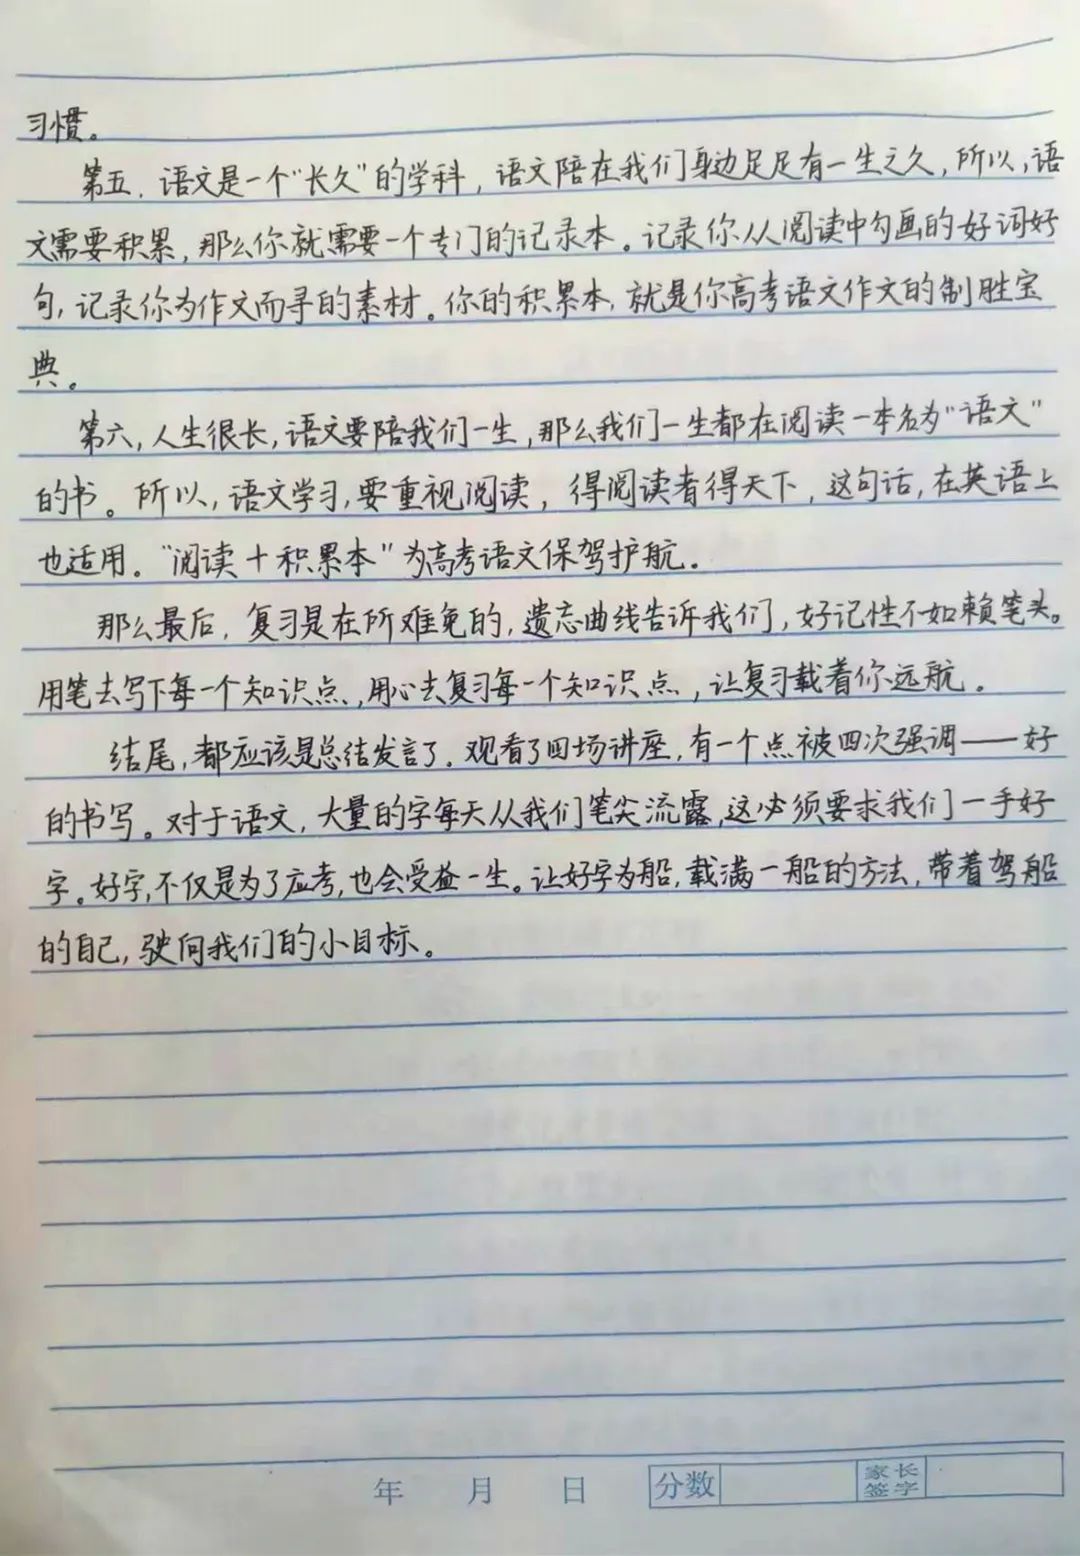 习惯。
第五.语文是一个“长久”的学科，语文陪在我们身边足足有一生之久，所以，语
文需要积累，那么你就需要一个专门的记录本。记录你从阅读中勾画的好词好
句，记录你为作文而寻的素材。你的积累本，就是你高考语文作文的制胜宝
典。
第六，人生很长，语文要陪我们一生，那么我们一生都在阅读一本名为“语文”
的书。所以，语文学习，要重视阅读，得阅读者得天下，这句话，在英语上
也适用。“阅读＋积累本”为高考语文保驾护航。
那么最后，复习是在所难免的，遗忘曲线告诉我们，好记性不如赖笔头。
用笔去写下每一个知识点，用心去复习每一个知识点，让复习载着你远航。
结尾，都应该是总结发言了。观看了四场讲座，有一个点被四次强调——好
的书写。对于语文，大量的字每天从我们笔尖流露，这必须要求我们一手好
字。好字，不仅是为了应考，也会受益一生。让好字为船，载满一船的方法，带着驾船
的自己，驶向我们的小目标。
年 月 日 分数 家长签字